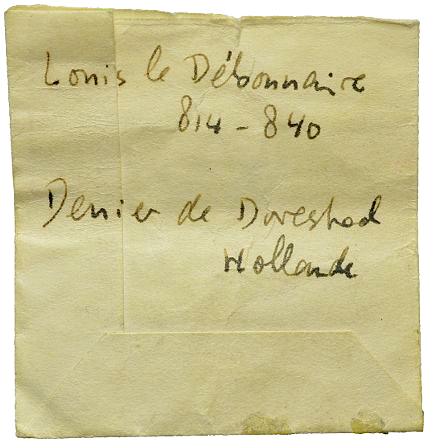 Louis le Débonnaire
814 - 840
Denier de Dorestad
Hollande